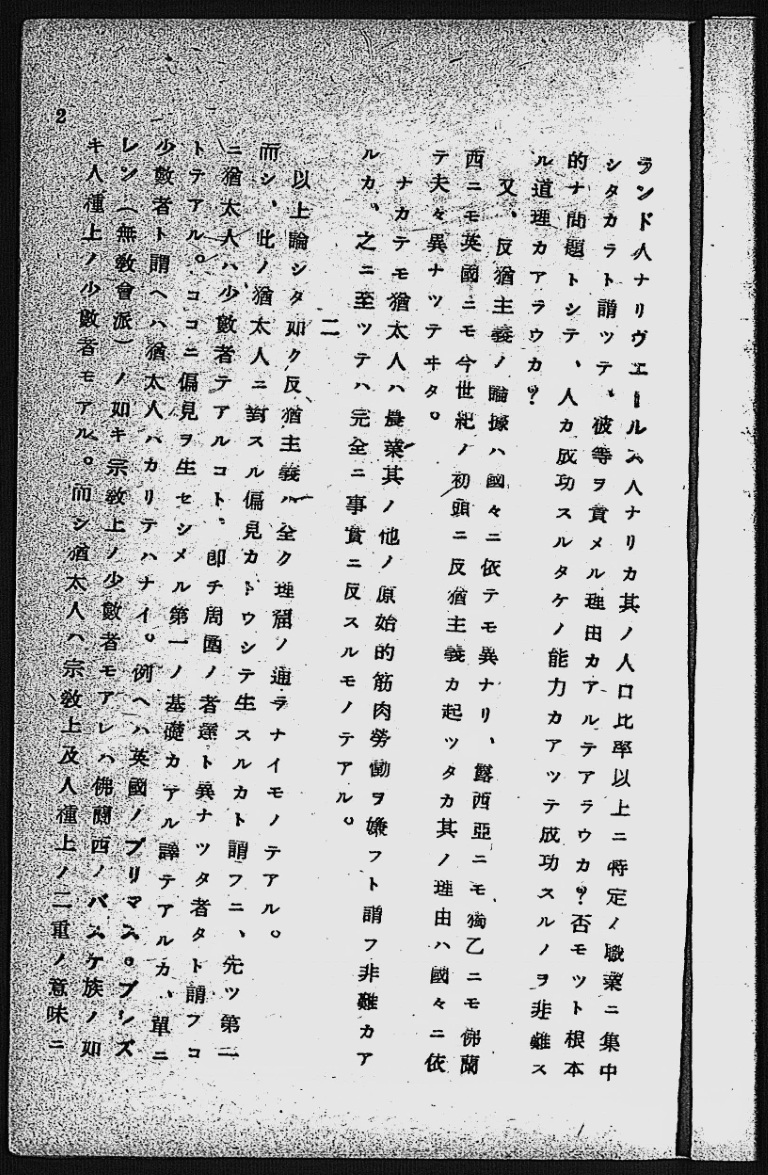 ランド人ナリヴエールス人ナリカ其ノ人口比率以上ニ特定ノ職業ニ集中
シタカラト謂ツテ、彼等ヲ責メル理由カアルテアラウカ?否モツト根本
的ナ問題トシテ、人カ成功スルタケノ能力カアツテ成功スルノヲ非難ス
ル道理カアラウカ?
又、反猶主義ノ論據ハ國々ニ依テモ異ナリ、露西亞ニモ獨乙ニモ佛蘭
西ニモ英國ニモ今世紀ノ初頭ニ反猶主義カ起ツタカ其ノ理由ハ國々ニ依
テ夫々異ナツテヰタ。
ナカテモ猶太人ハ農業其ノ他ノ原始的筋肉勞働ヲ嫌フト謂フ非難カア
ルカ、之ニ至ツテハ完全ニ事實ニ反スルモノテアル。
二
以上論シタ如ク反猶主義ハ全ク理窟ノ通ラナイモノテアル。
而シ、此ノ猶太人ニ對スル偏見カトウシテ生スルカト謂フニ、先ツ第一
ニ猶太人ハ少數者テアルコト、即チ周圍ノ者達ト異ナツタ者タト謂フコ
トテアル。ココニ偏見ヲ生セシメル第一ノ基礎カアル譯テアルカ、單ニ
少數者ト謂ヘハ猶太人ハカリテハナイ。例ヘハ英國ノプリマス。ブレズ
レン(無教會派)ノ如キ宗教上ノ少數者モアレハ佛蘭西ノバスケ族ノ如
キ人種上ノ少數者モアル。而シ猶太人ハ宗教上及人種上ノ二重ノ意味ニ
2